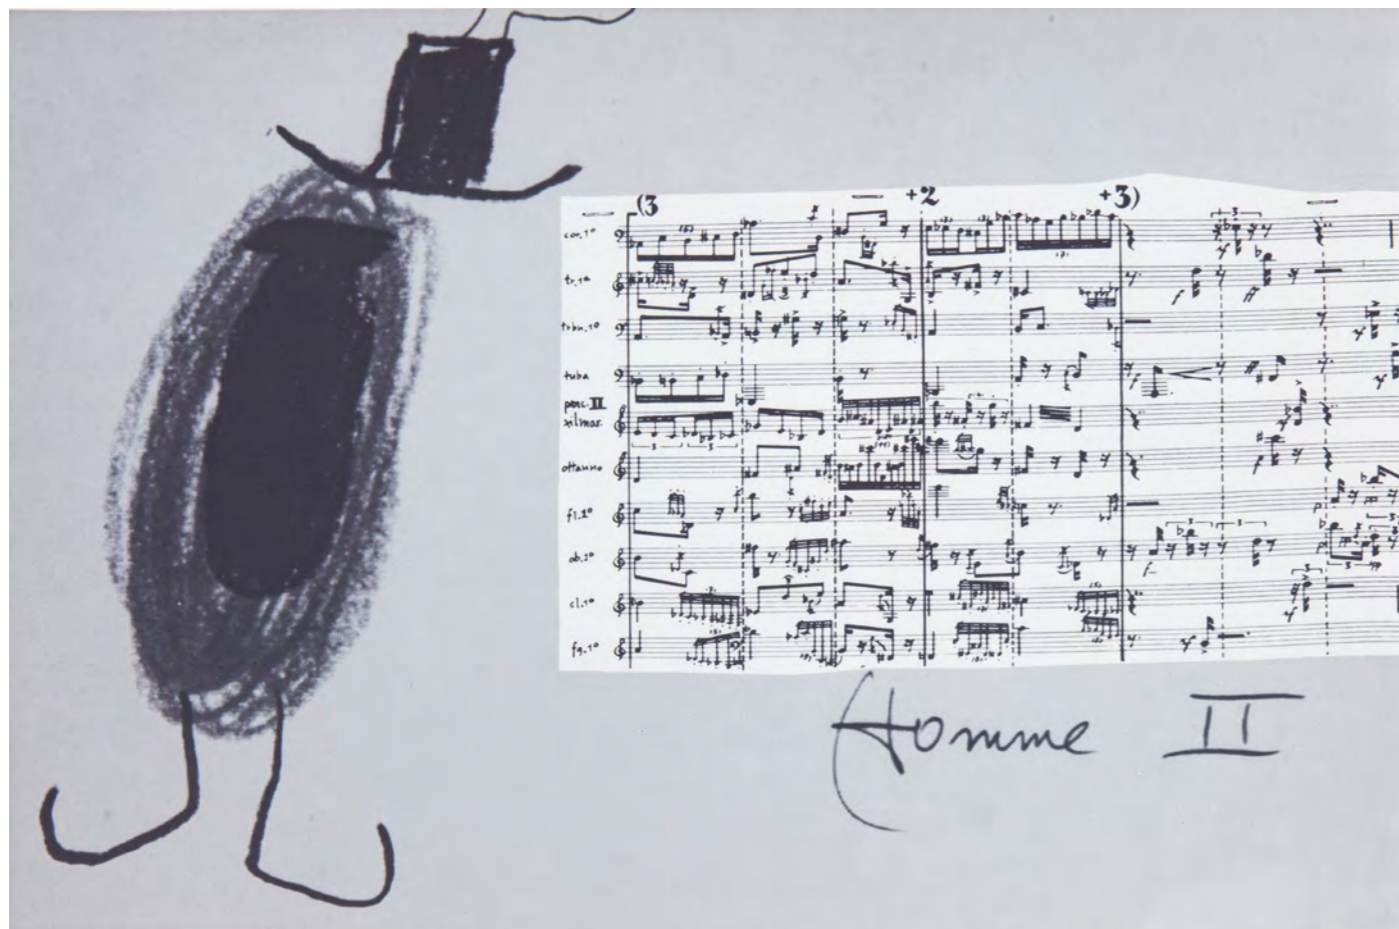 (3 +2 +3)
cor. 1º
tr. 1ª
trbn. 1º
tuba
perc. II
xilmar.
ottavino
fl. 2º
ob. 1º
cl. 1º
fg. 1º
Homme II